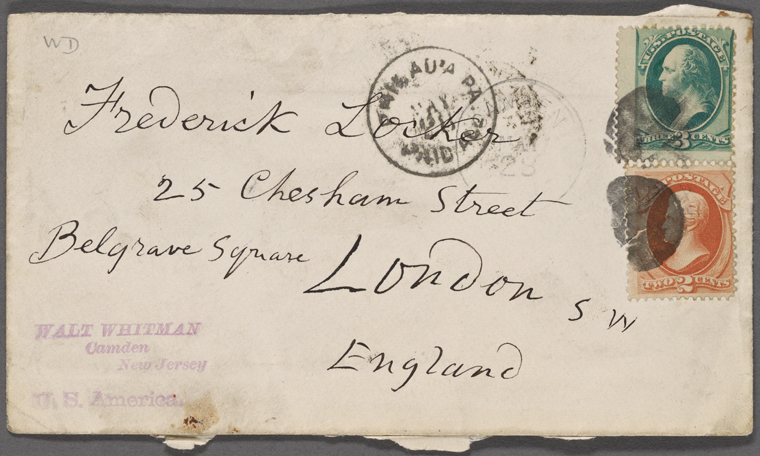 WD
PHILAD'A PA
MAY
PAID ALL
U.S. POSTAGE
THREE 3 CENTS
POSTAGE
TWO 2 CENTS
23
Frederick Locker
25 Chesham Street
Belgrave Square
London S W
England
WALT WHITMAN
Camden
New Jersey
U. S. America.